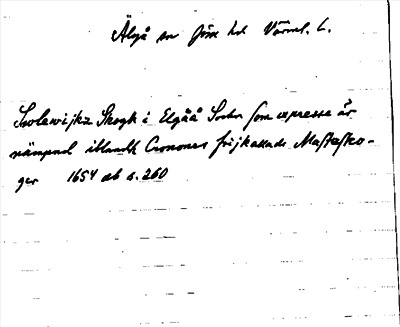 Älgå sn Jösse hd Värml. L.
Soolewijkz Skogh i Elgåå Sochn som expresse är
nämpnd iblandh Cronones frijkallade Mastesko-
ger 1654 ab s. 260